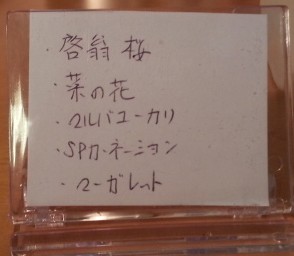 ・啓翁桜
・菜の花
・マルバユーカリ
・SPカーネーション
・マーガレット